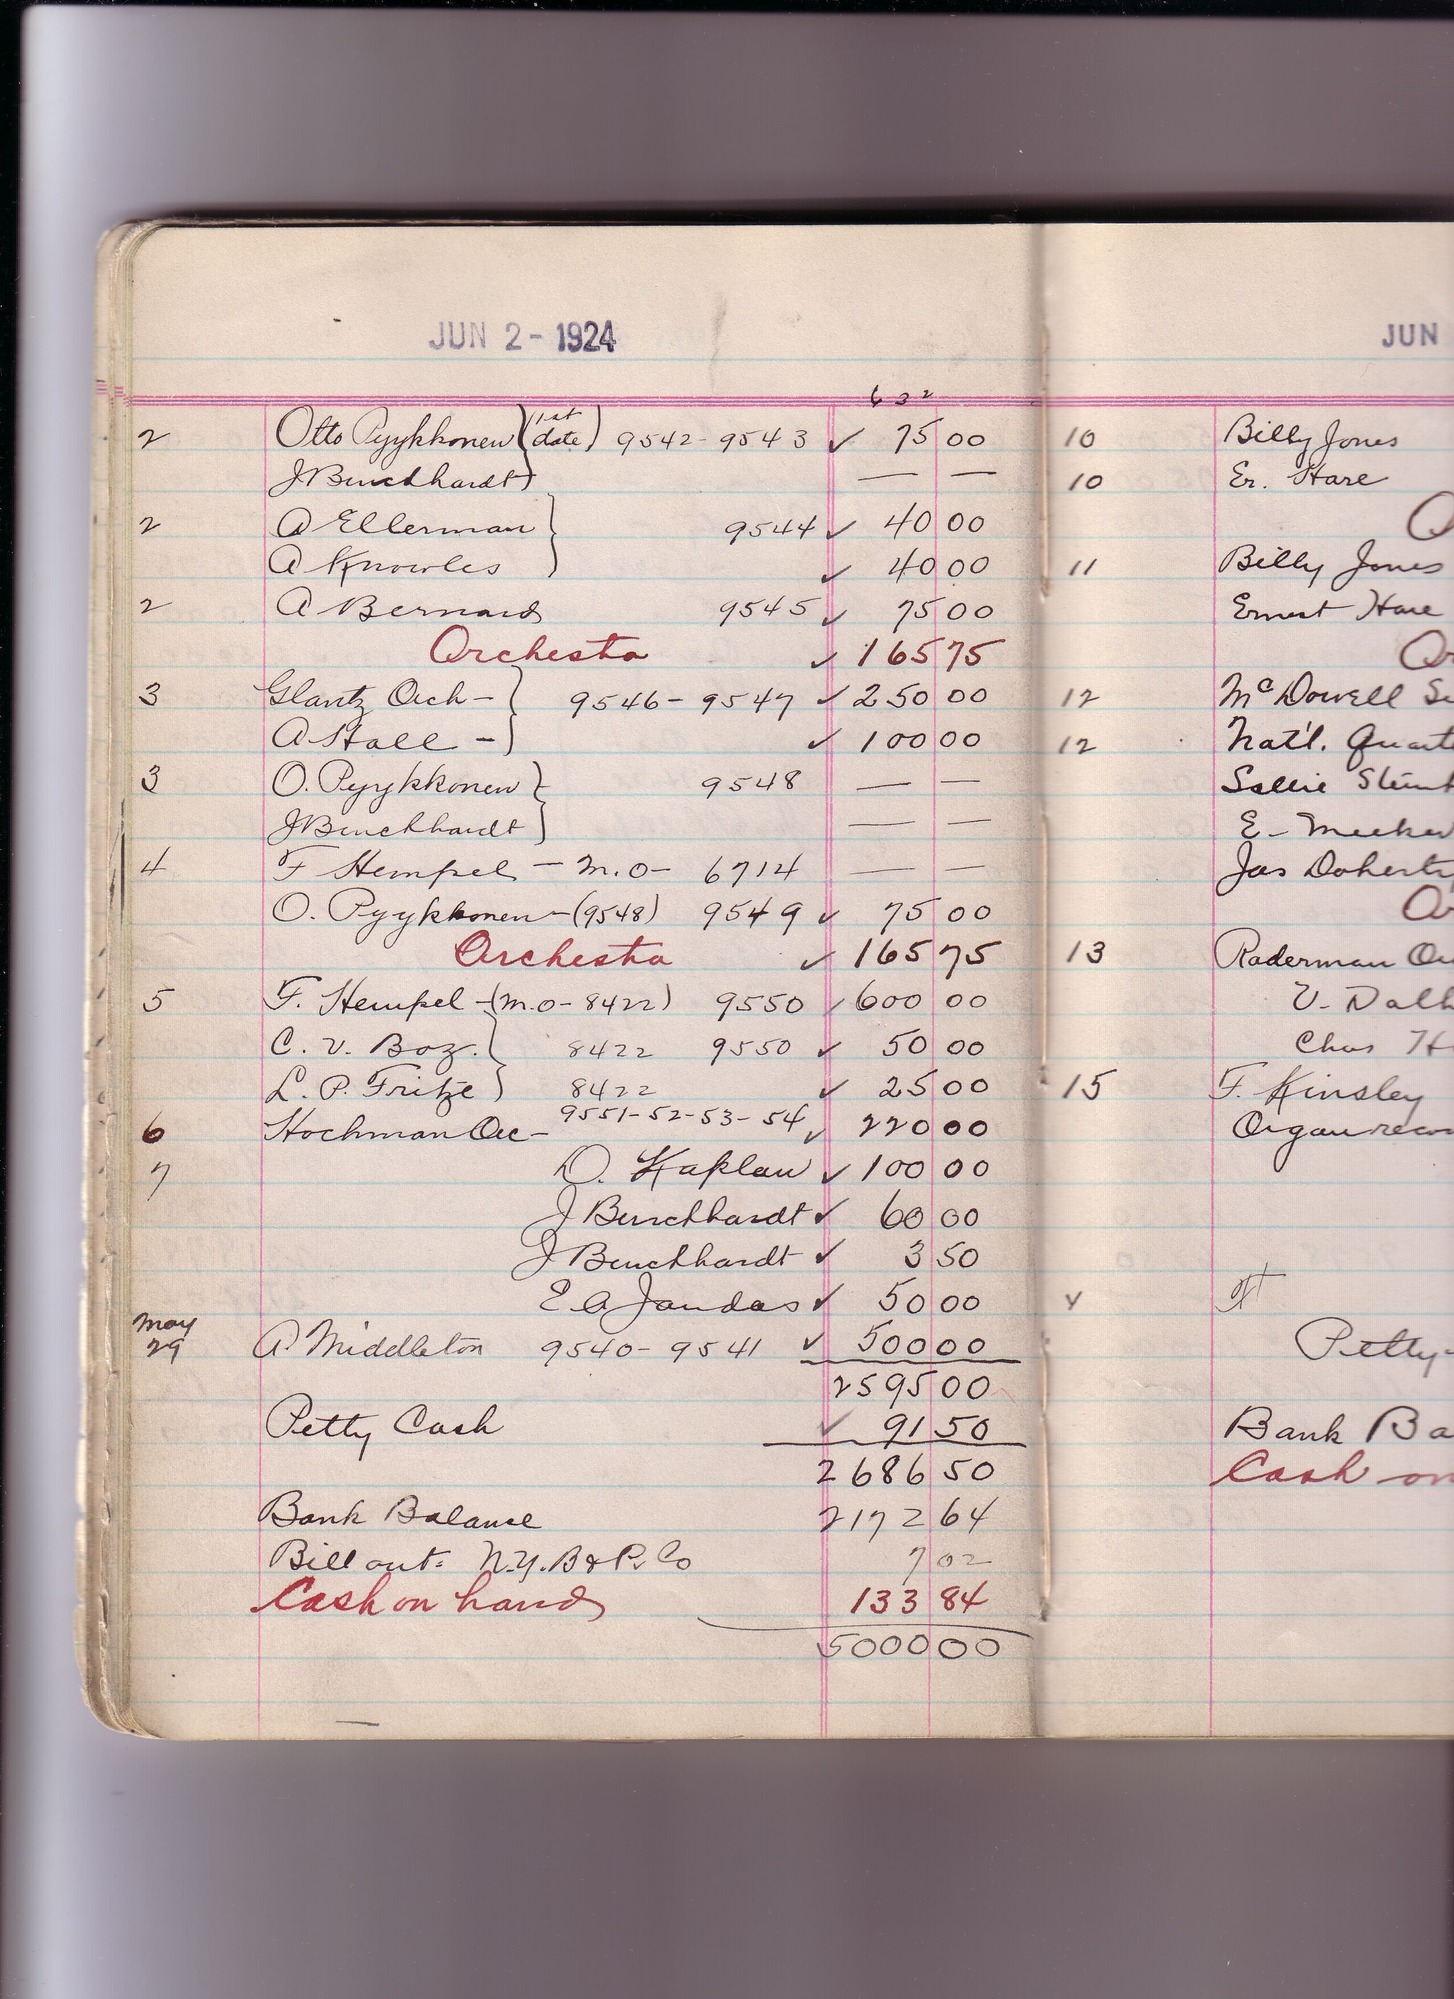 JUN 2 - 1924
632
2 Otto Pyykkonen (1st date) 9542 - 9543 ✓ 75 00
J Burckhardt — —
2 A Ellerman 9544 ✓ 40 00
A Knowles ✓ 40 00
2 A Bernard 9545 ✓ 75 00
Orchestra ✓ 165 75
3 Glantz Orch - 9546 - 9547 ✓ 250 00
A Hall - ✓ 100 00
3 O. Pyykkonen 9548 — —
J Burckhardt — —
4 F Hempel - M.O - 6714 — —
O. Pyykkonen - (9548) 9549 ✓ 75 00
Orchestra ✓ 165 75
5 F. Hempel - (M.O - 8422) 9550 ✓ 600 00
C. V. Boz. 8422 9550 ✓ 50 00
L. P. Fritze 8422 ✓ 25 00
6 Hochman Orc - 9551-52-53-54 ✓ 220 00
7 D. Kaplan ✓ 100 00
J Burckhardt ✓ 60 00
J Burckhardt ✓ 3 50
E A Jandas ✓ 50 00
May
29 A. Middleton 9540 - 9541 ✓ 500 00
2595 00
Petty Cash ✓ 91 50
2686 50
Bank Balance 2172 64
Bill out: N.Y. B & P. Co 7 02
Cash on hand 133 84
5000 00
JUN
10 Billy Jones
10 Er. Hare
11 Billy Jones
Ernest Hare
Or
12 McDowell
12 Nat'l.
Sallie
E - Meeker
Jas
Or
13 Raderman
V.
Chas
15 F. Kinsley
Organ
Petty
Bank Ba
Cash on